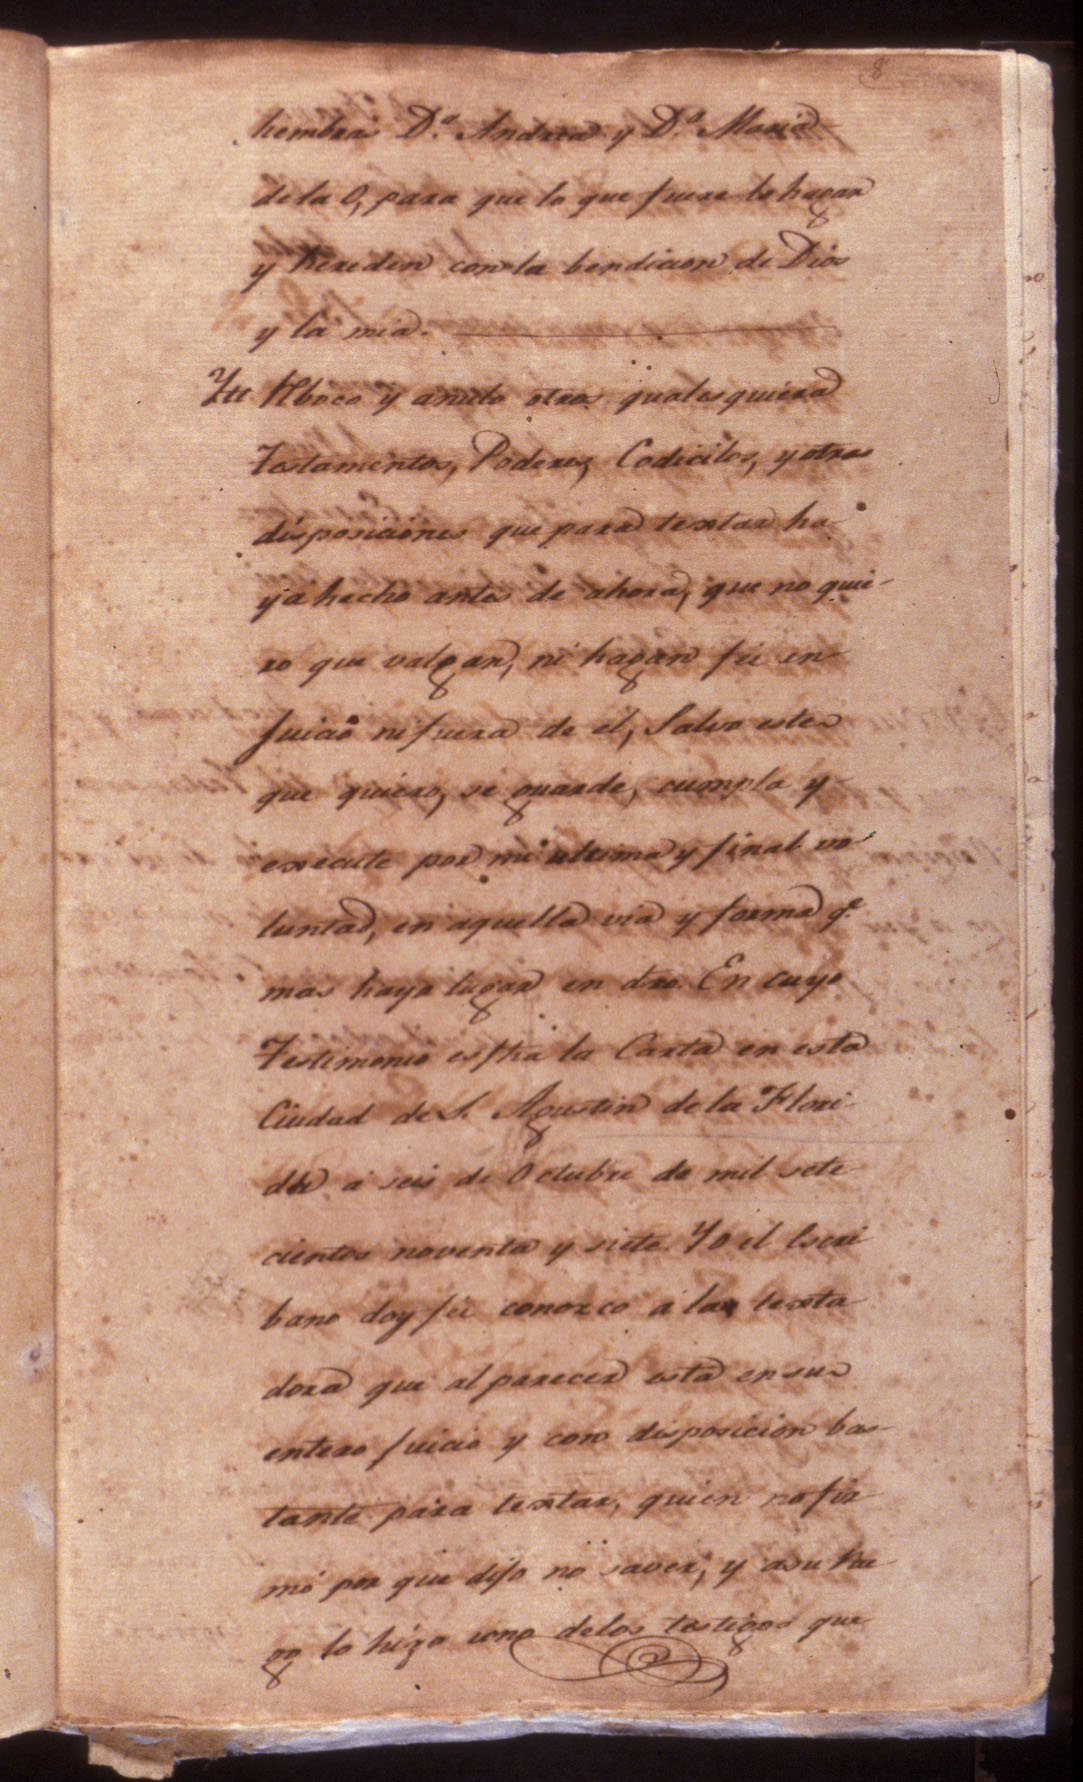 8
hembras D.ª Andrea y D.ª Maria
de la O, para que lo que fuere lo hagan
y hereden con la bendicion de Dios
y la mia.
Ytt Reboco y anulo otros qualesquiera
Testamentos, Poderes, Codicilos, y otras
disposiciones que para textar ha
ya hecho antes de ahora, que no quie-
ro que valgan, ni hagan fée en
Juicio ni fuera de el, Salvo este
que quiero, se guarde, cumpla y
execute por mi ultima y final vo
luntad, en aquella via y forma q.e
mas haya lugar en dro. En cuyo
Testimonio es fha la Carta en esta
Ciudad de S. Agustin de la Flori
da a seis de Octubre de mil sete
cientos noventa y siete. Yo el Escri
bano doy fée conozco a la texta
dora que al parecer esta en su
entero Juicio y con disposicion bas-
tante para textar, quien no fir
mó por que dijo no saver, y a su rue
go lo hizo uno delos testigos que